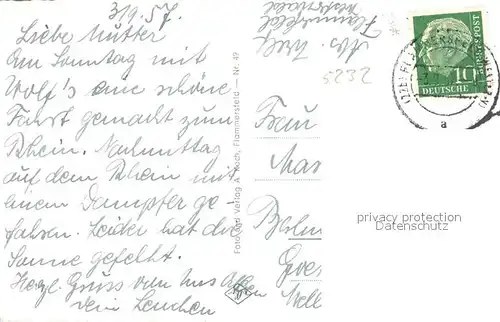 3/9.57.
Liebe Mutter
Am Sonntag mit
Wolf's eine schöne
Fahrt gemacht zum
Rhein. Nachmittag
auf dem Rhein mit
einem Dampfer ge-
fahren. Leider hat die
Sonne gefehlt.
Herzl. Gruss von uns allen
Dein Lenchen
Foto und Verlag A. Koch, Flammersfeld – Nr. 49
Abs. Wolf
Flammersfeld
Westerwald
5232
10
DEUTSCHE
BUNDESPOST
a
Frau
privacy protection
Datenschutz